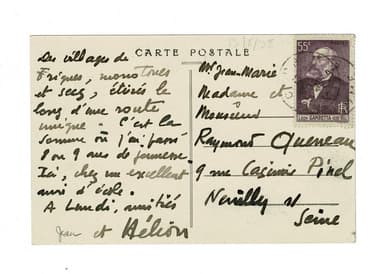 CARTE POSTALE
Des villages de
briques, monotones
et secs, étirés le
long d'une route
unique - C'est la
Somme où j'ai passé
8 ou 9 ans de jeunesse.
Ici, chez un excellent
ami d'école.
A Lundi, amitiés
Jean et Hélion
55c
LÉON GAMBETTA
RF
Mr Jean-Marie
Madame et
Monsieur
Raymond Queneau
9 rue Casimir Pinel
Neuilly s/
Seine